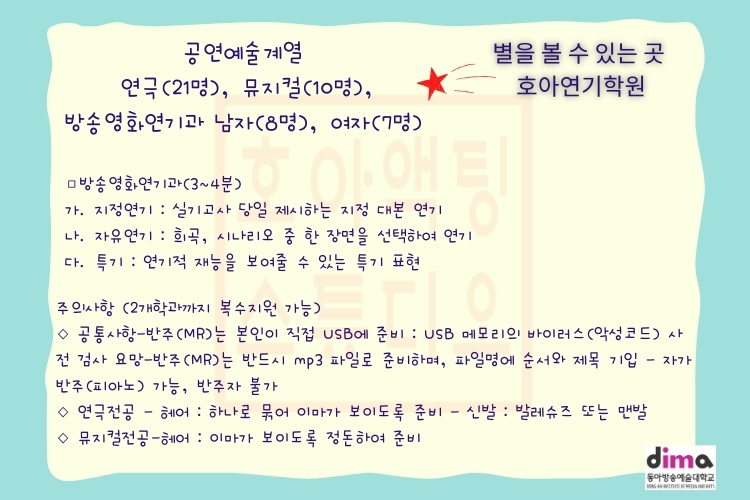 공연예술계열
연극(21명), 뮤지컬(10명),
방송영화연기과 남자(8명), 여자(7명)
별을 볼 수 있는 곳
호아연기학원
호아액팅
스튜디오
□방송영화연기과(3~4분)
가. 지정연기 : 실기고사 당일 제시하는 지정 대본 연기
나. 자유연기 : 희곡, 시나리오 중 한 장면을 선택하여 연기
다. 특기 : 연기적 재능을 보여줄 수 있는 특기 표현
주의사항 (2개학과까지 복수지원 가능)
◇ 공통사항-반주(MR)는 본인이 직접 USB에 준비 : USB 메모리의 바이러스(악성코드) 사
전 검사 요망-반주(MR)는 반드시 mp3 파일로 준비하며, 파일명에 순서와 제목 기입 - 자가
반주(피아노) 가능, 반주자 불가
◇ 연극전공 - 헤어 : 하나로 묶어 이마가 보이도록 준비 - 신발 : 발레슈즈 또는 맨발
◇ 뮤지컬전공-헤어 : 이마가 보이도록 정돈하여 준비
dima
동아방송예술대학교
DONG-AH INSTITUTE OF MEDIA AND ARTS